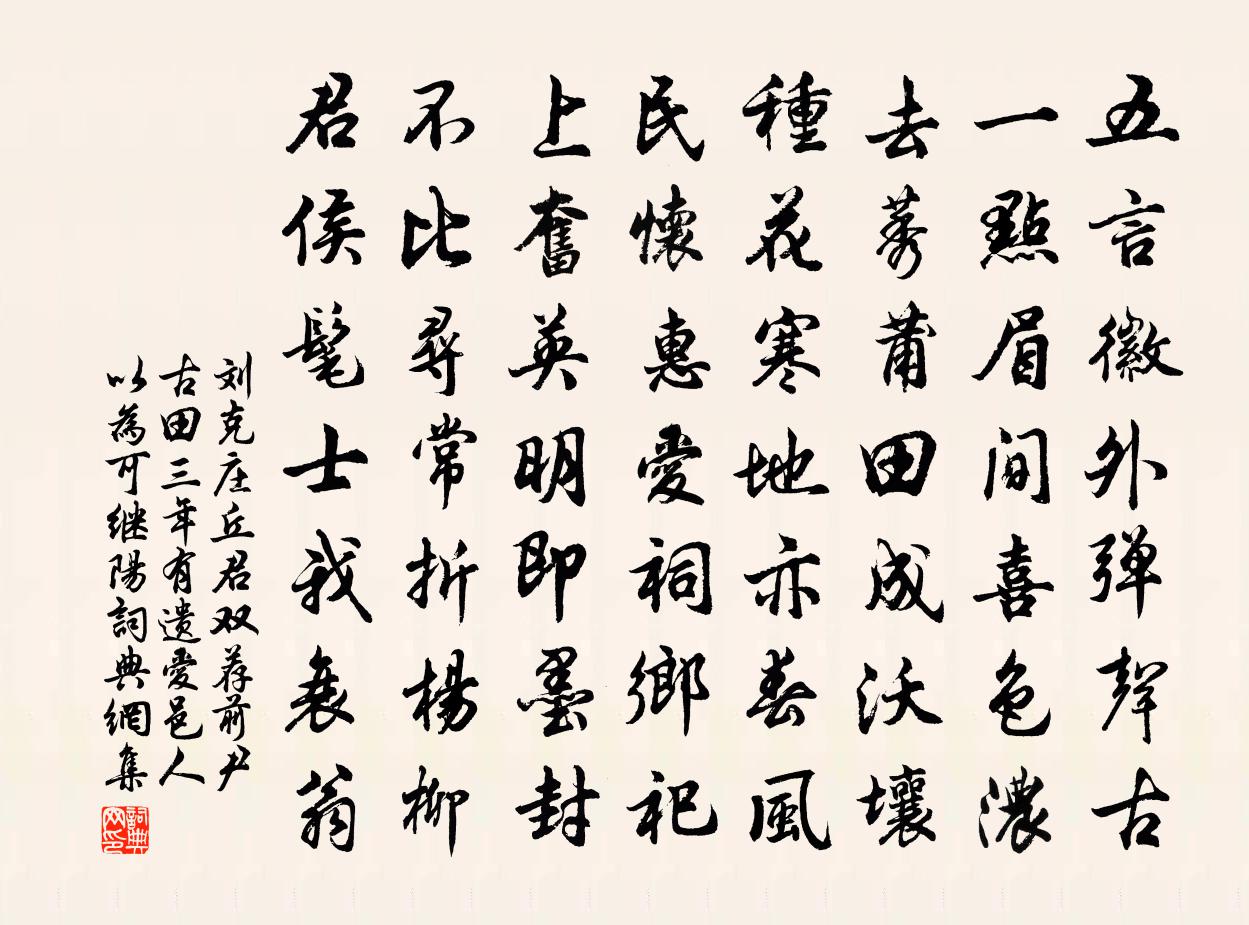 五言徽外弹聲古
一點眉間喜色濃
去莠莆田成沃壤
種花寒地亦春風
民懷惠愛祠鄉祀
上奮英明即墨封
不比尋常折楊柳
君侯髦士我衰翁
刘克庄丘君双荐前尹
古田三年有遗愛邑人
以為可继陽詞典網集
詞典网印